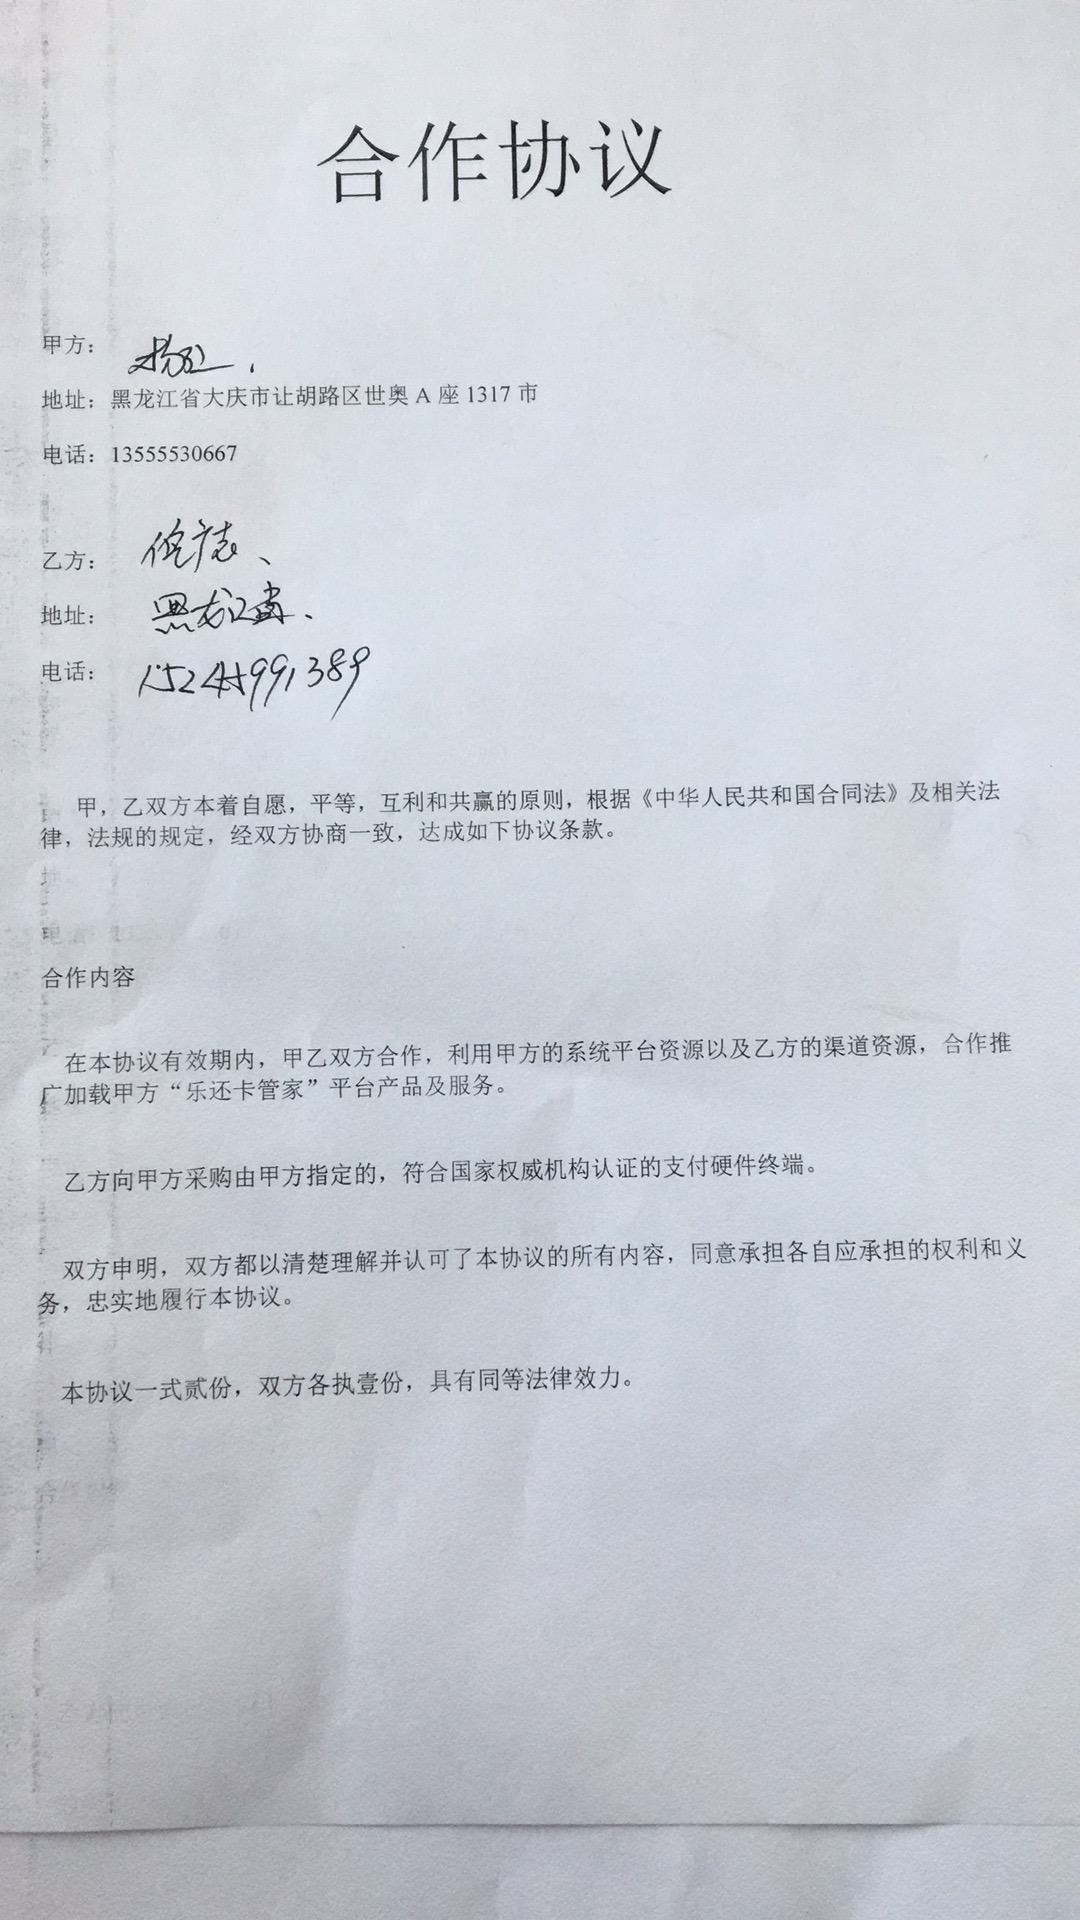 合作协议
甲方：
地址：黑龙江省大庆市让胡路区世奥 A 座 1317 市
电话：13555530667
乙方：
地址： 黑龙江省、
电话： 15244991389
甲，乙双方本着自愿，平等，互利和共赢的原则，根据《中华人民共和国合同法》及相关法
律，法规的规定，经双方协商一致，达成如下协议条款。
合作内容
在本协议有效期内，甲乙双方合作，利用甲方的系统平台资源以及乙方的渠道资源，合作推
广加载甲方“乐还卡管家”平台产品及服务。
乙方向甲方采购由甲方指定的，符合国家权威机构认证的支付硬件终端。
双方申明，双方都以清楚理解并认可了本协议的所有内容，同意承担各自应承担的权利和义
务，忠实地履行本协议。
本协议一式贰份，双方各执壹份，具有同等法律效力。